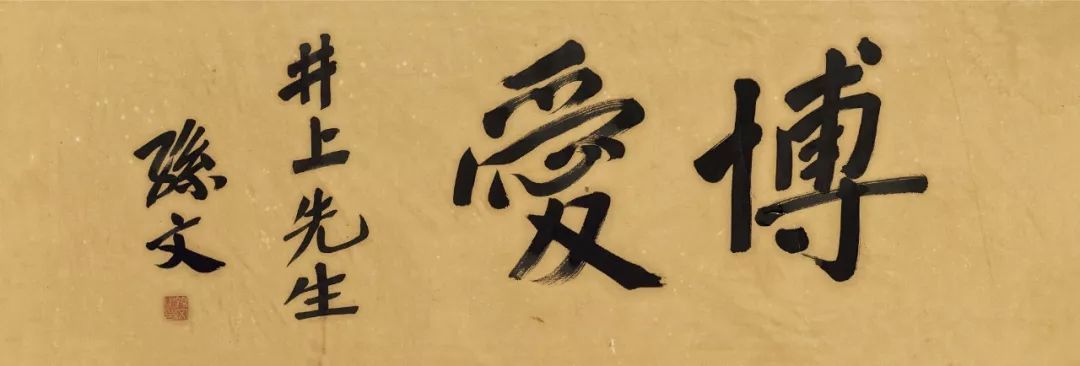 博愛
井上先生
孫文